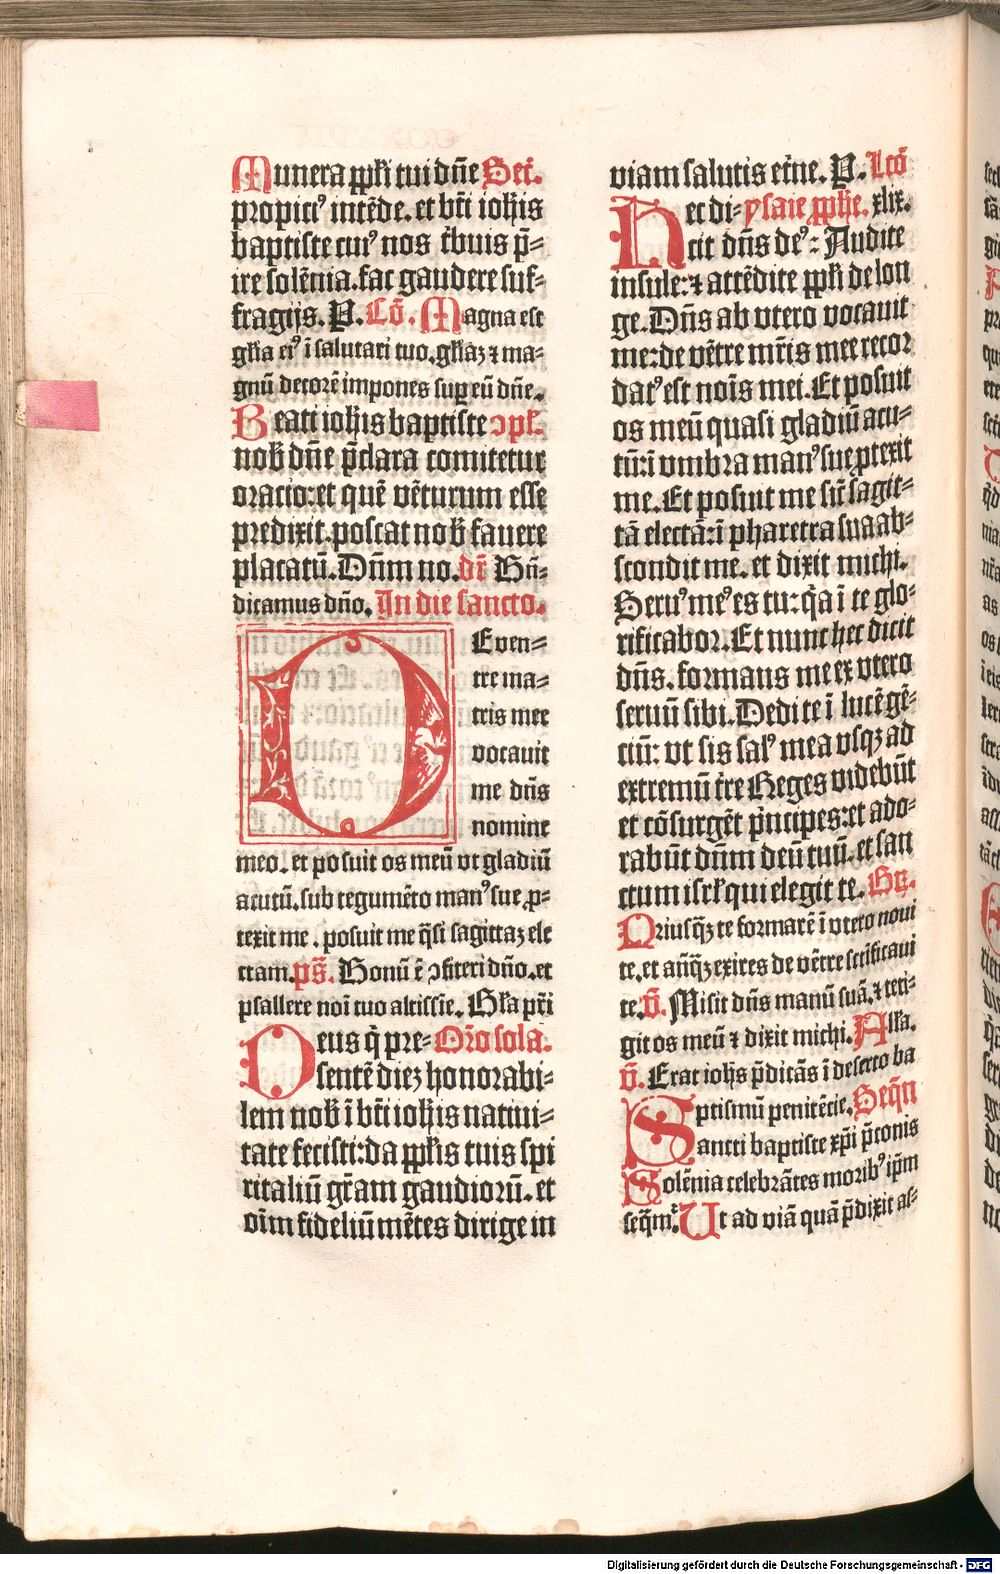 Munera ppl̄i tui dn̄e Secr̄.
propiciꝰ intēde. et bt̄i ioh̄is
baptiste cuiꝰ nos t̄buis p̄-
ire solēnia. fac gaudere suf-
fragijs. P. Cō. Magna est
gl̄ia eiꝰ ī salutari tuo. gl̄iaꝫ ⁊ ma-
gnū decorē impones suꝑ eū dn̄e.
Beati ioh̄is baptiste ↄpl̄.
nob̄ dn̄e p̄clara comitetur
oracio: et quē vēturum esse
predixit. poscat nob̄ fauere
placatū. Dn̄m no. dr̄ Bn̄-
dicamus dn̄o. In die sancto.
DE ven-
tre ma-
tris mee
vocauit
me dn̄s
nomine
meo. et posuit os meū vt gladiū
acutū. sub tegumēto manꝰ sue ꝓ-
texit me. posuit me q̄si sagittaꝫ ele
ctam. ps̄. Bonū ē ↄfiteri dn̄o. et
psallere noī tuo altissīe. Gl̄ia pr̄i
Deus q̄ pre- Or̄o sola.
sentē dieꝫ honorabi-
lem nob̄ ī bt̄i ioh̄is natiui-
tate fecisti: da ppl̄is tuis spi
ritaliū gr̄am gaudiorū. et
oīm fideliū mētes dirige in
viam salutis et̄ne. P. Lcō
Hec di- ysaie ꝓph̄e. xlix.
cit dn̄s deꝰ: Audite
insule: ⁊ attēdite ppl̄i de lon
ge. Dn̄s ab vtero vocauit
me: de vētre mr̄is mee recor
datꝰ est noīs mei. Et posuit
os meū quasi gladiū acu-
tū: ī vmbra manꝰ sue ꝓtexit
me. Et posuit me sic̄ sagit-
tā electā: ī pharetra sua ab-
scondit me. et dixit michi.
Seruꝰ meꝰ es tu: q̄a ī te glo-
rificabor. Et nunc hec dicit
dn̄s. formans me ex vtero
seruū sibi. Dedi te ī lucē gē-
ciū: vt sis salꝰ mea vsqꝫ ad
extremū t̄re Reges videbūt
et cōsurgēt p̄ncipes: et ado-
rabūt dn̄m deū tuū. et san
ctum isrl̄ qui elegit te. Gr̄.
Priusq̄ꝫ te formarē ī vtero noui
te. et an̄q̄ꝫ exires de vētre sct̄ificaui
te. v̄. Misit dn̄s manū suā. ⁊ teti-
git os meū ⁊ dixit michi. All̄a.
v̄. Erat ioh̄s p̄dicās ī deserto ba
ptismū penitēcie. Seq̄n
Sancti baptiste xp̄i p̄conis
Solēnia celebrātes moribꝰ ip̄m
seq̄mr̄. Ut ad viā quā p̄dixit as-
Digitalisierung gefördert durch die Deutsche Forschungsgemeinschaft - DFG